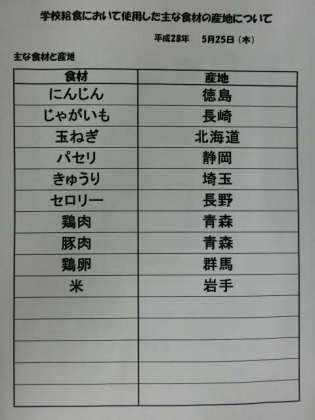 学校給食において使用した主な食材の産地について
平成28年 5月25日（木）
主な食材と産地
食材 産地
にんじん 徳島
じゃがいも 長崎
玉ねぎ 北海道
パセリ 静岡
きゅうり 埼玉
セロリー 長野
鶏肉 青森
豚肉 青森
鶏卵 群馬
米 岩手